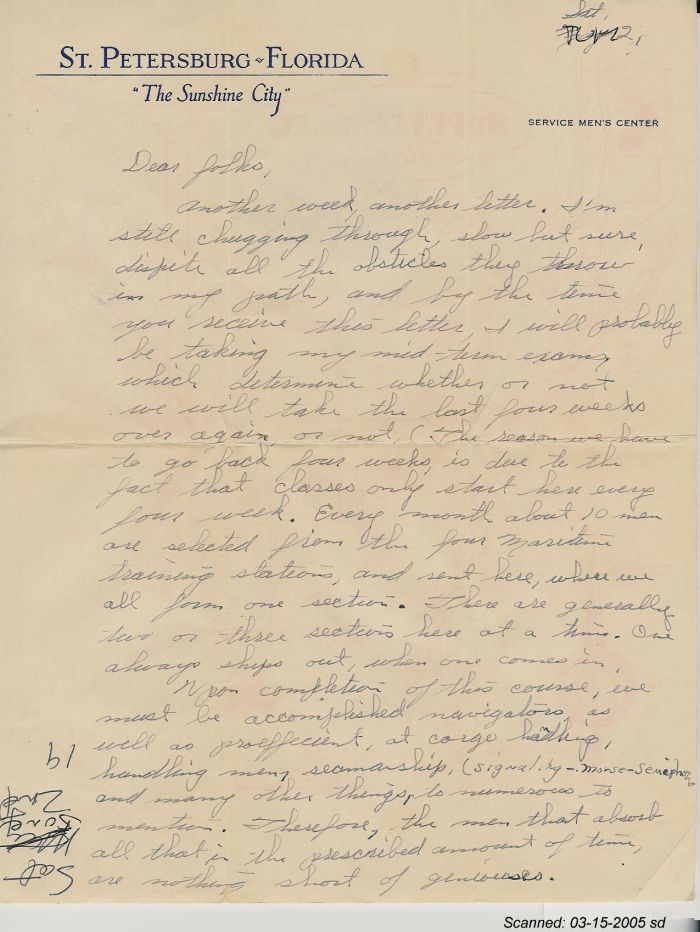 Sat,
ST. PETERSBURG ~ FLORIDA
"The Sunshine City"
SERVICE MEN'S CENTER
Dear folks,
Another week, another letter. I'm
still chugging through, slow but sure,
dispite all the obsticles they throw
in my path, and by the time
you receive this letter, I will probably
be taking my mid-term exams,
which determine whether or not
we will take the last four weeks
over again, or not. (The reason we have
to go back four weeks, is due to the
fact that classes only start here every
four week. Every month about 10 men
are selected from the four Maritime
training stations, and sent here, where we
all form one section. There are generally
two or three sections here at a time. One
always ships out, when one comes in.
Upon completion of this course, we
must be accomplished navigators, as
well as proefficient, at cargo
handling men, seamanship, (signal.ng-morse-semaphore
and many other things, to numerous to
mention. Therefore, the men that absorb
all that in the prescribed amount of time,
are nothing short of geniouses.
Sat
2nd
19
Scanned: 03-15-2005 sd